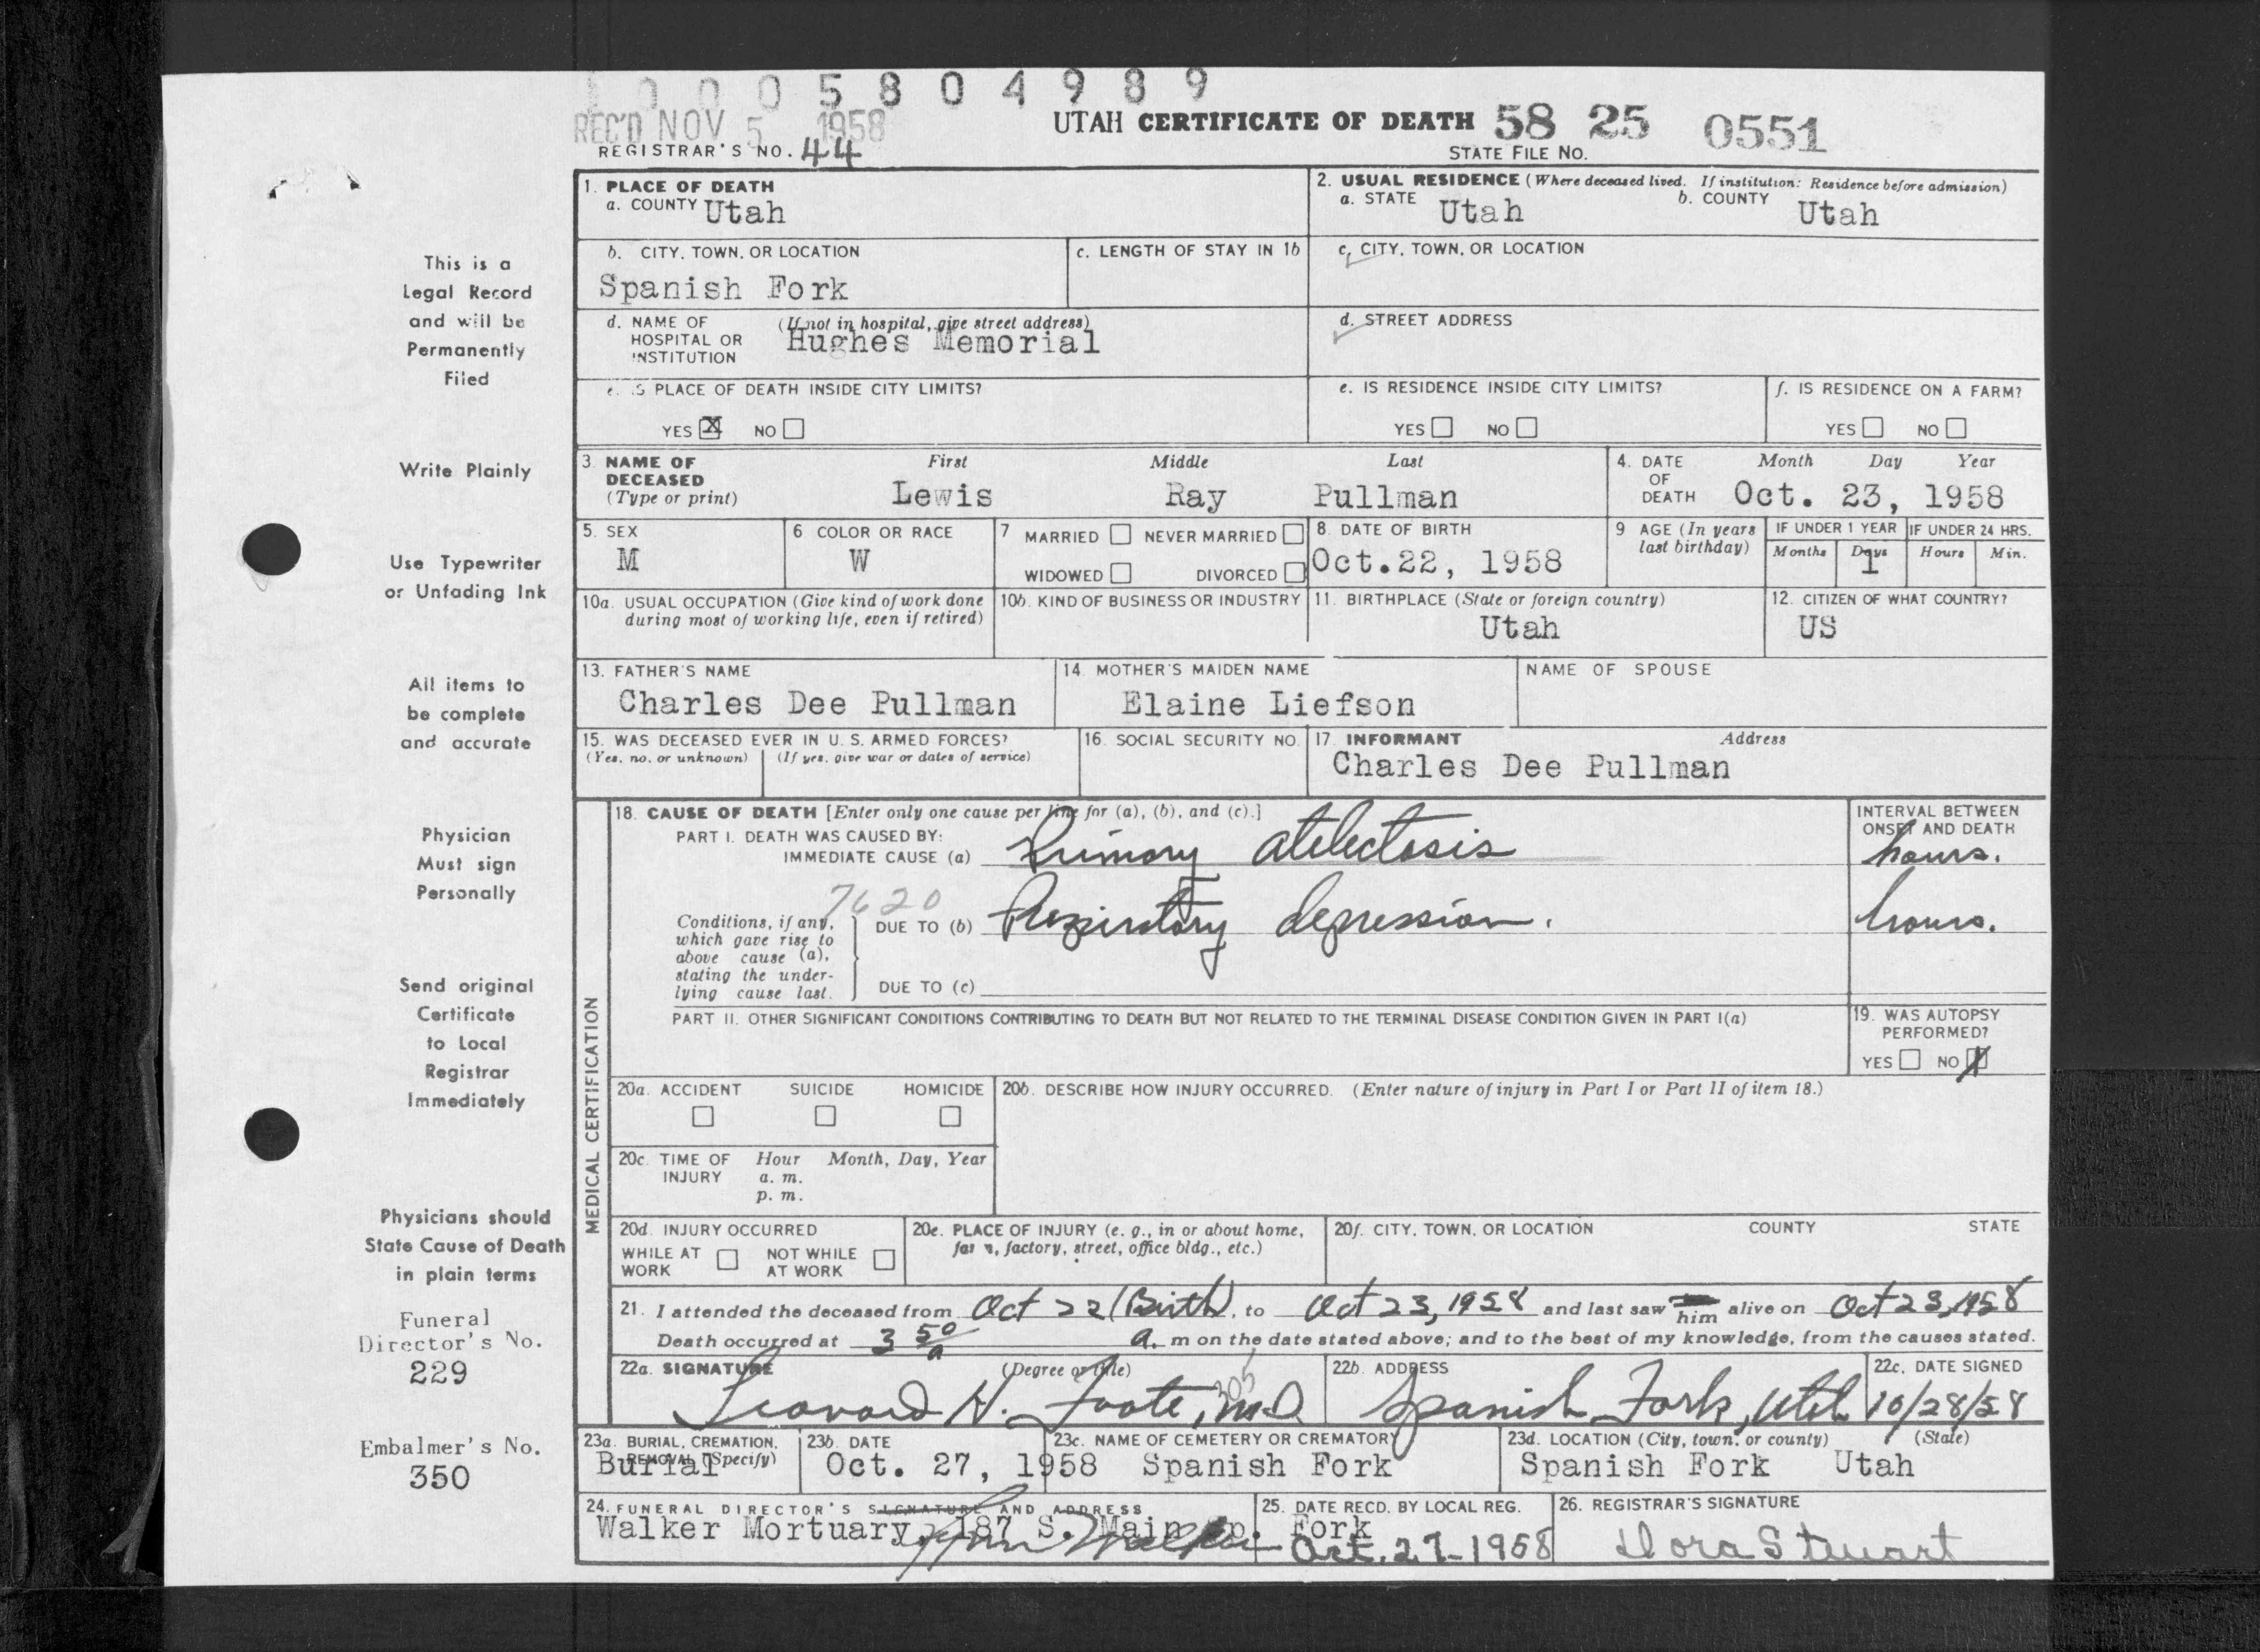 1 0 0 0 5 8 0 4 9 8 9
REC'D NOV 5 1958
UTAH CERTIFICATE OF DEATH 58 25 0551
REGISTRAR'S NO. 44
STATE FILE NO.
1. PLACE OF DEATH
a. COUNTY Utah
2. USUAL RESIDENCE (Where deceased lived. If institution: Residence before admission)
a. STATE Utah b. COUNTY Utah
b. CITY, TOWN, OR LOCATION
Spanish Fork
c. LENGTH OF STAY IN 1b
c. CITY, TOWN, OR LOCATION
d. NAME OF HOSPITAL OR INSTITUTION (If not in hospital, give street address)
Hughes Memorial
d. STREET ADDRESS
e. IS PLACE OF DEATH INSIDE CITY LIMITS?
YES X NO
e. IS RESIDENCE INSIDE CITY LIMITS?
YES NO
f. IS RESIDENCE ON A FARM?
YES NO
3. NAME OF DECEASED (Type or print)
First Middle Last
Lewis Ray Pullman
4. DATE OF DEATH Month Day Year
Oct. 23, 1958
5. SEX
M
6 COLOR OR RACE
W
7 MARRIED NEVER MARRIED
WIDOWED DIVORCED
8. DATE OF BIRTH
Oct.22, 1958
9 AGE (In years last birthday)
IF UNDER 1 YEAR IF UNDER 24 HRS.
Months Days Hours Min.
1
10a. USUAL OCCUPATION (Give kind of work done during most of working life, even if retired)
10b. KIND OF BUSINESS OR INDUSTRY
11. BIRTHPLACE (State or foreign country)
Utah
12. CITIZEN OF WHAT COUNTRY?
US
13. FATHER'S NAME
Charles Dee Pullman
14. MOTHER'S MAIDEN NAME
Elaine Liefson
NAME OF SPOUSE
15. WAS DECEASED EVER IN U. S. ARMED FORCES?
(Yes, no, or unknown) (If yes, give war or dates of service)
16. SOCIAL SECURITY NO.
17. INFORMANT Address
Charles Dee Pullman
MEDICAL CERTIFICATION
18. CAUSE OF DEATH [Enter only one cause per line for (a), (b), and (c).]
PART I. DEATH WAS CAUSED BY:
IMMEDIATE CAUSE (a) Primary atelectasis
INTERVAL BETWEEN ONSET AND DEATH
hours.
7620
Conditions, if any, which gave rise to above cause (a), stating the underlying cause last.
DUE TO (b) Respiratory depression.
hours.
DUE TO (c)
PART II. OTHER SIGNIFICANT CONDITIONS CONTRIBUTING TO DEATH BUT NOT RELATED TO THE TERMINAL DISEASE CONDITION GIVEN IN PART I(a)
19. WAS AUTOPSY PERFORMED?
YES NO X
20a. ACCIDENT SUICIDE HOMICIDE
20b. DESCRIBE HOW INJURY OCCURRED. (Enter nature of injury in Part I or Part II of item 18.)
20c. TIME OF INJURY Hour Month, Day, Year
a. m.
p. m.
20d. INJURY OCCURRED
WHILE AT WORK NOT WHILE AT WORK
20e. PLACE OF INJURY (e. g., in or about home, farm, factory, street, office bldg., etc.)
20f. CITY, TOWN, OR LOCATION COUNTY STATE
21. I attended the deceased from Oct 22 (Birth), to Oct 23, 1958 and last saw him alive on Oct 23, 1958
Death occurred at 3 50 a a. m on the date stated above; and to the best of my knowledge, from the causes stated.
22a. SIGNATURE (Degree or title)
Leonard H. Foote, M.D.
305
22b. ADDRESS
Spanish Fork, Utah
22c. DATE SIGNED
10/28/58
23a. BURIAL, CREMATION, REMOVAL (Specify)
Burial
23b. DATE
Oct. 27, 1958
23c. NAME OF CEMETERY OR CREMATORY
Spanish Fork
23d. LOCATION (City, town, or county) (State)
Spanish Fork Utah
24. FUNERAL DIRECTOR'S SIGNATURE AND ADDRESS
Walker Mortuary, 187 S. Main Sp. Fork
25. DATE RECD. BY LOCAL REG.
Oct. 27-1958
26. REGISTRAR'S SIGNATURE
Dora Stewart
This is a
Legal Record
and will be
Permanently
Filed
Write Plainly
Use Typewriter
or Unfading Ink
All items to
be complete
and accurate
Physician
Must sign
Personally
Send original
Certificate
to Local
Registrar
Immediately
Physicians should
State Cause of Death
in plain terms
Funeral
Director's No.
229
Embalmer's No.
350